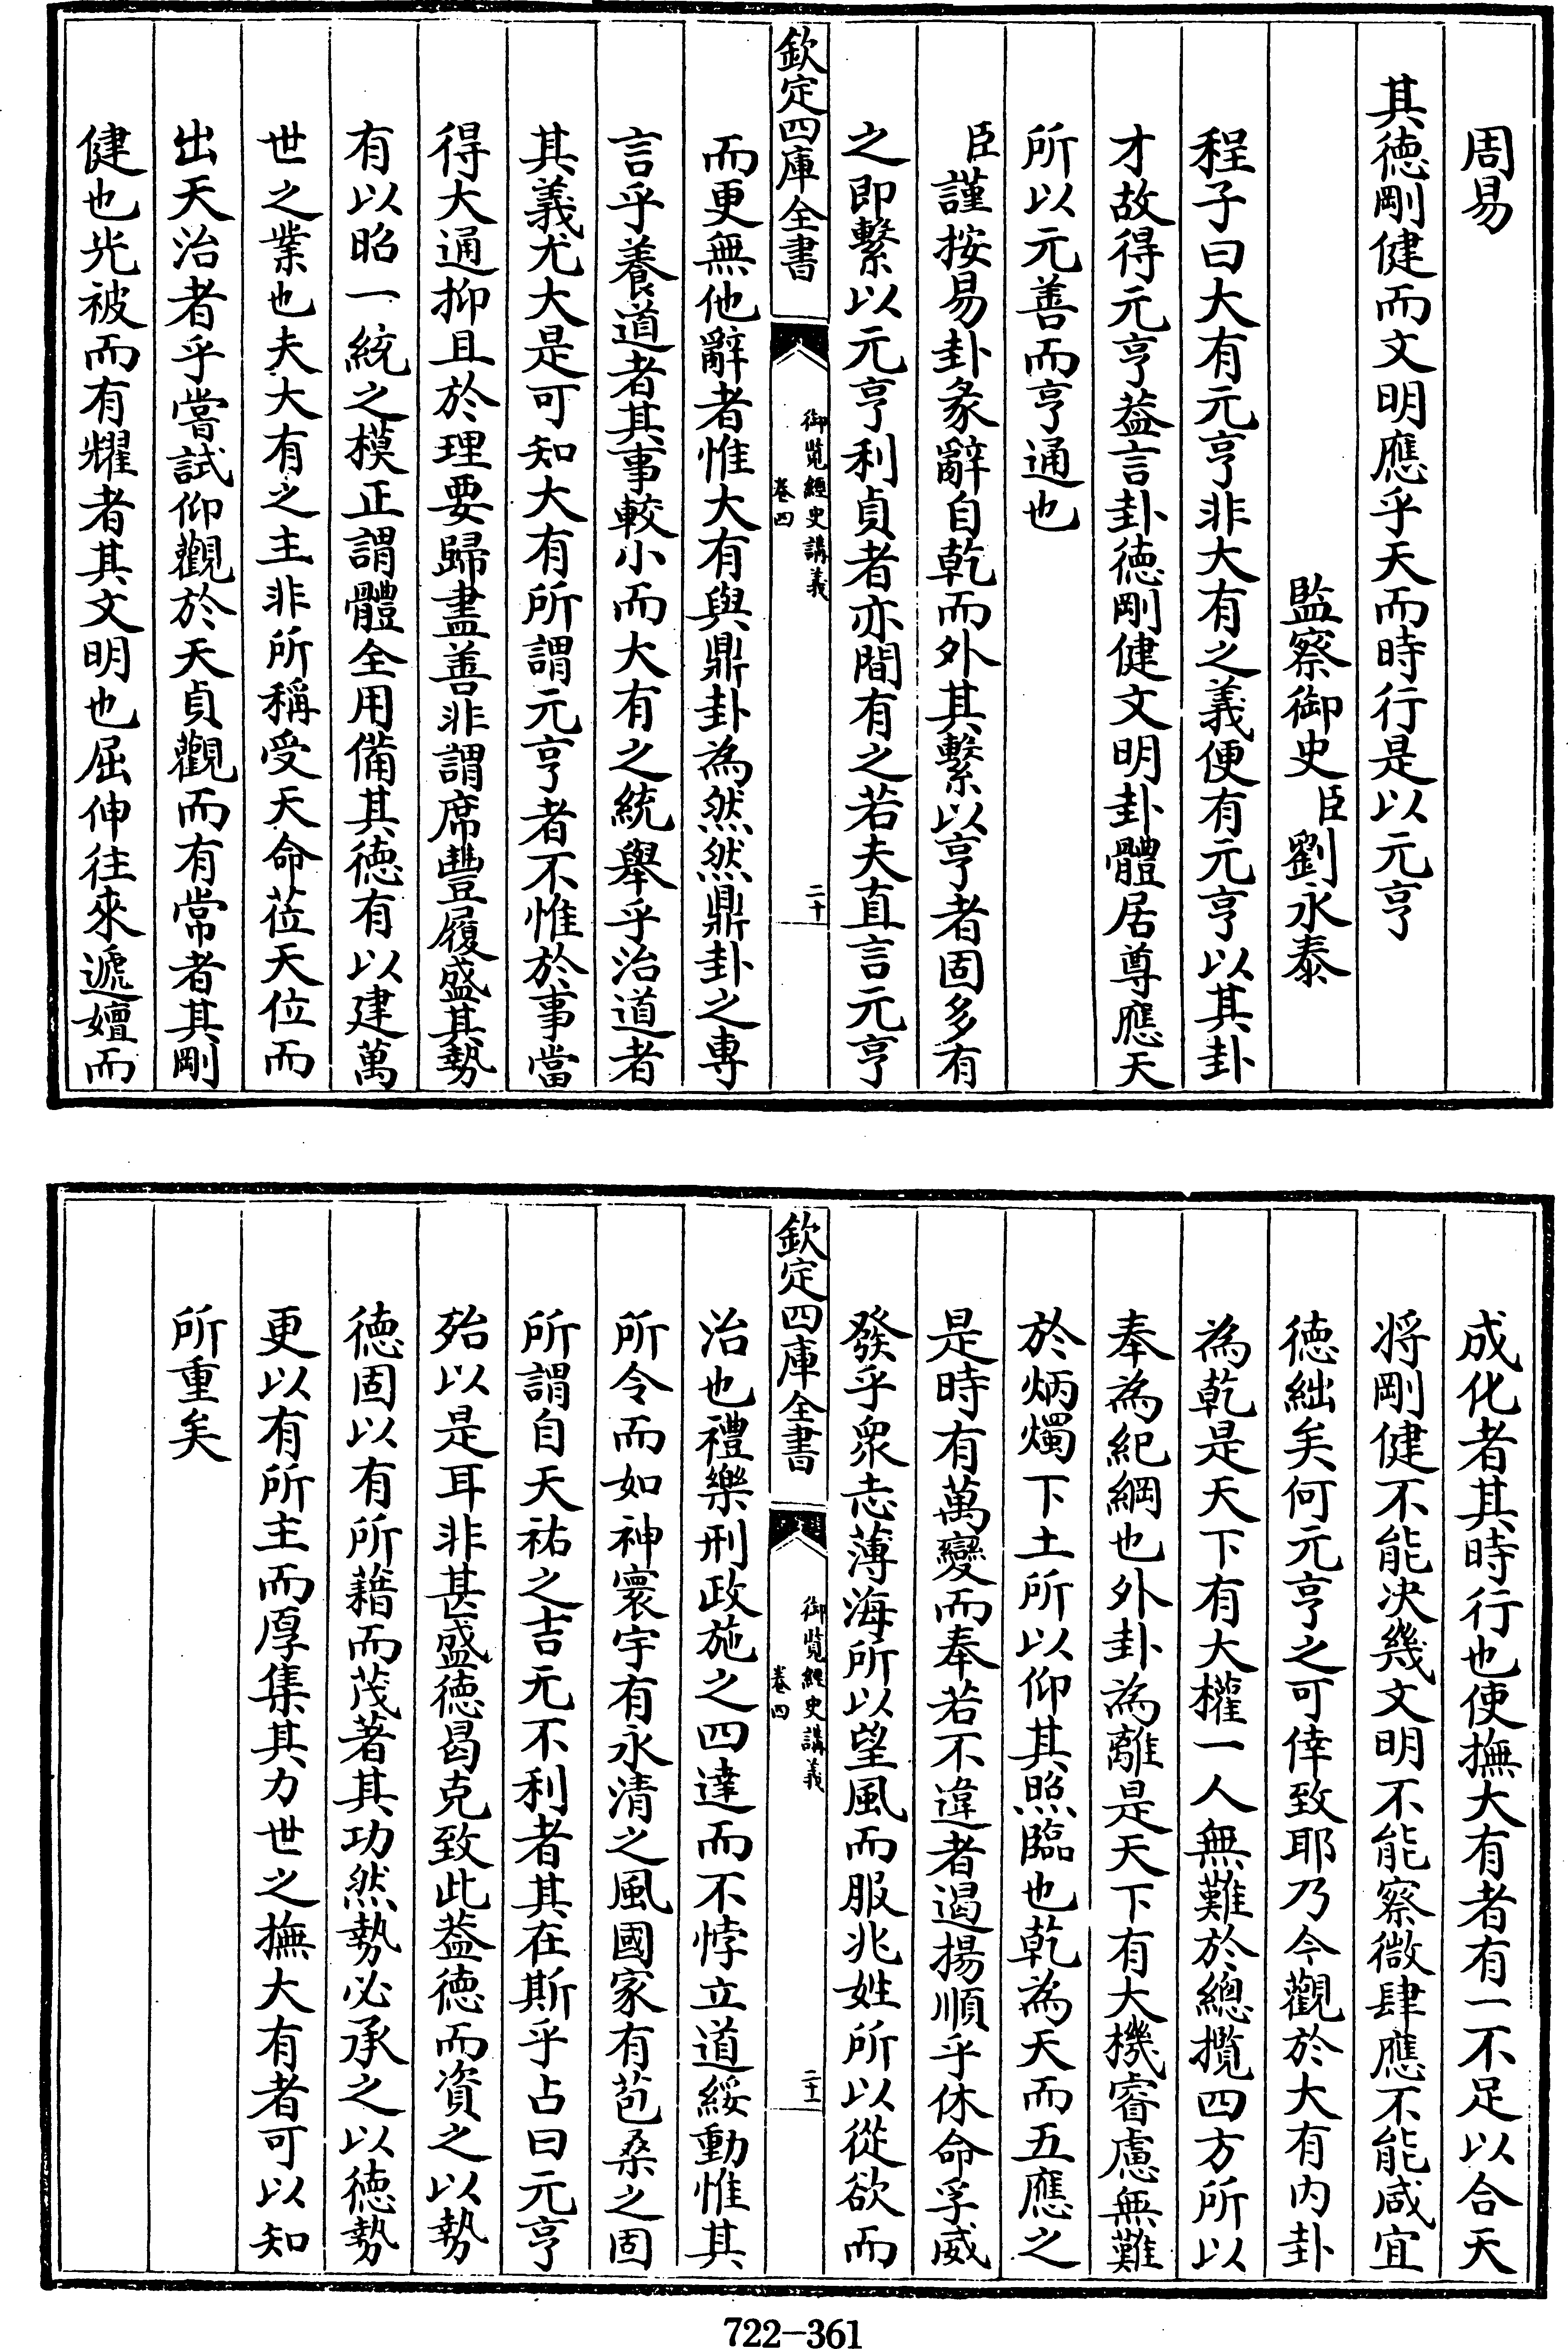 周易
其德剛健而文明應乎天而時行是以元亨
監察御史臣劉永泰
程子曰大有元亨非大有之義便有元亨以其卦
才故得元亨葢言卦德剛健文明卦體居尊應天
所以元善而亨通也
臣謹按易卦彖辭自乾而外其繫以亨者固多有
之即繫以元亨利貞者亦間有之若夫直言元亨
欽定四庫全書
御覽經史講義
卷四
二十
而更無他辭者惟大有與鼎卦為然然鼎卦之專
言乎養道者其事較小而大有之統舉乎治道者
其義尤大是可知大有所謂元亨者不惟於事當
得大通抑且於理要歸盡善非謂席豐履盛其勢
有以昭一統之模正謂體全用備其德有以建萬
世之業也夫大有之主非所稱受天命莅天位而
出天治者乎嘗試仰觀於天貞觀而有常者其剛
健也光被而有耀者其文明也屈伸往來遞嬗而
成化者其時行也使撫大有者有一不足以合天
將剛健不能决幾文明不能察微肆應不能咸宜
德絀矣何元亨之可倖致耶乃今觀於大有内卦
為乾是天下有大權一人無難於總攬四方所以
奉為紀綱也外卦為離是天下有大機睿慮無難
於炳燭下土所以仰其照臨也乾為天而五應之
是時有萬變而奉若不違者遏揚順乎休命孚威
發乎衆志薄海所以望風而服兆姓所以從欲而
欽定四庫全書
御覽經史講義
卷四
二十一
治也禮樂刑政施之四達而不悖立道綏動惟其
所令而如神寰宇有永清之風國家有苞桑之固
所謂自天祐之吉无不利者其在斯乎占曰元亨
殆以是耳非甚盛德曷克致此葢德而資之以勢
德固以有所藉而茂著其功然勢必承之以德勢
更以有所主而厚集其力世之撫大有者可以知
所重矣
722-361